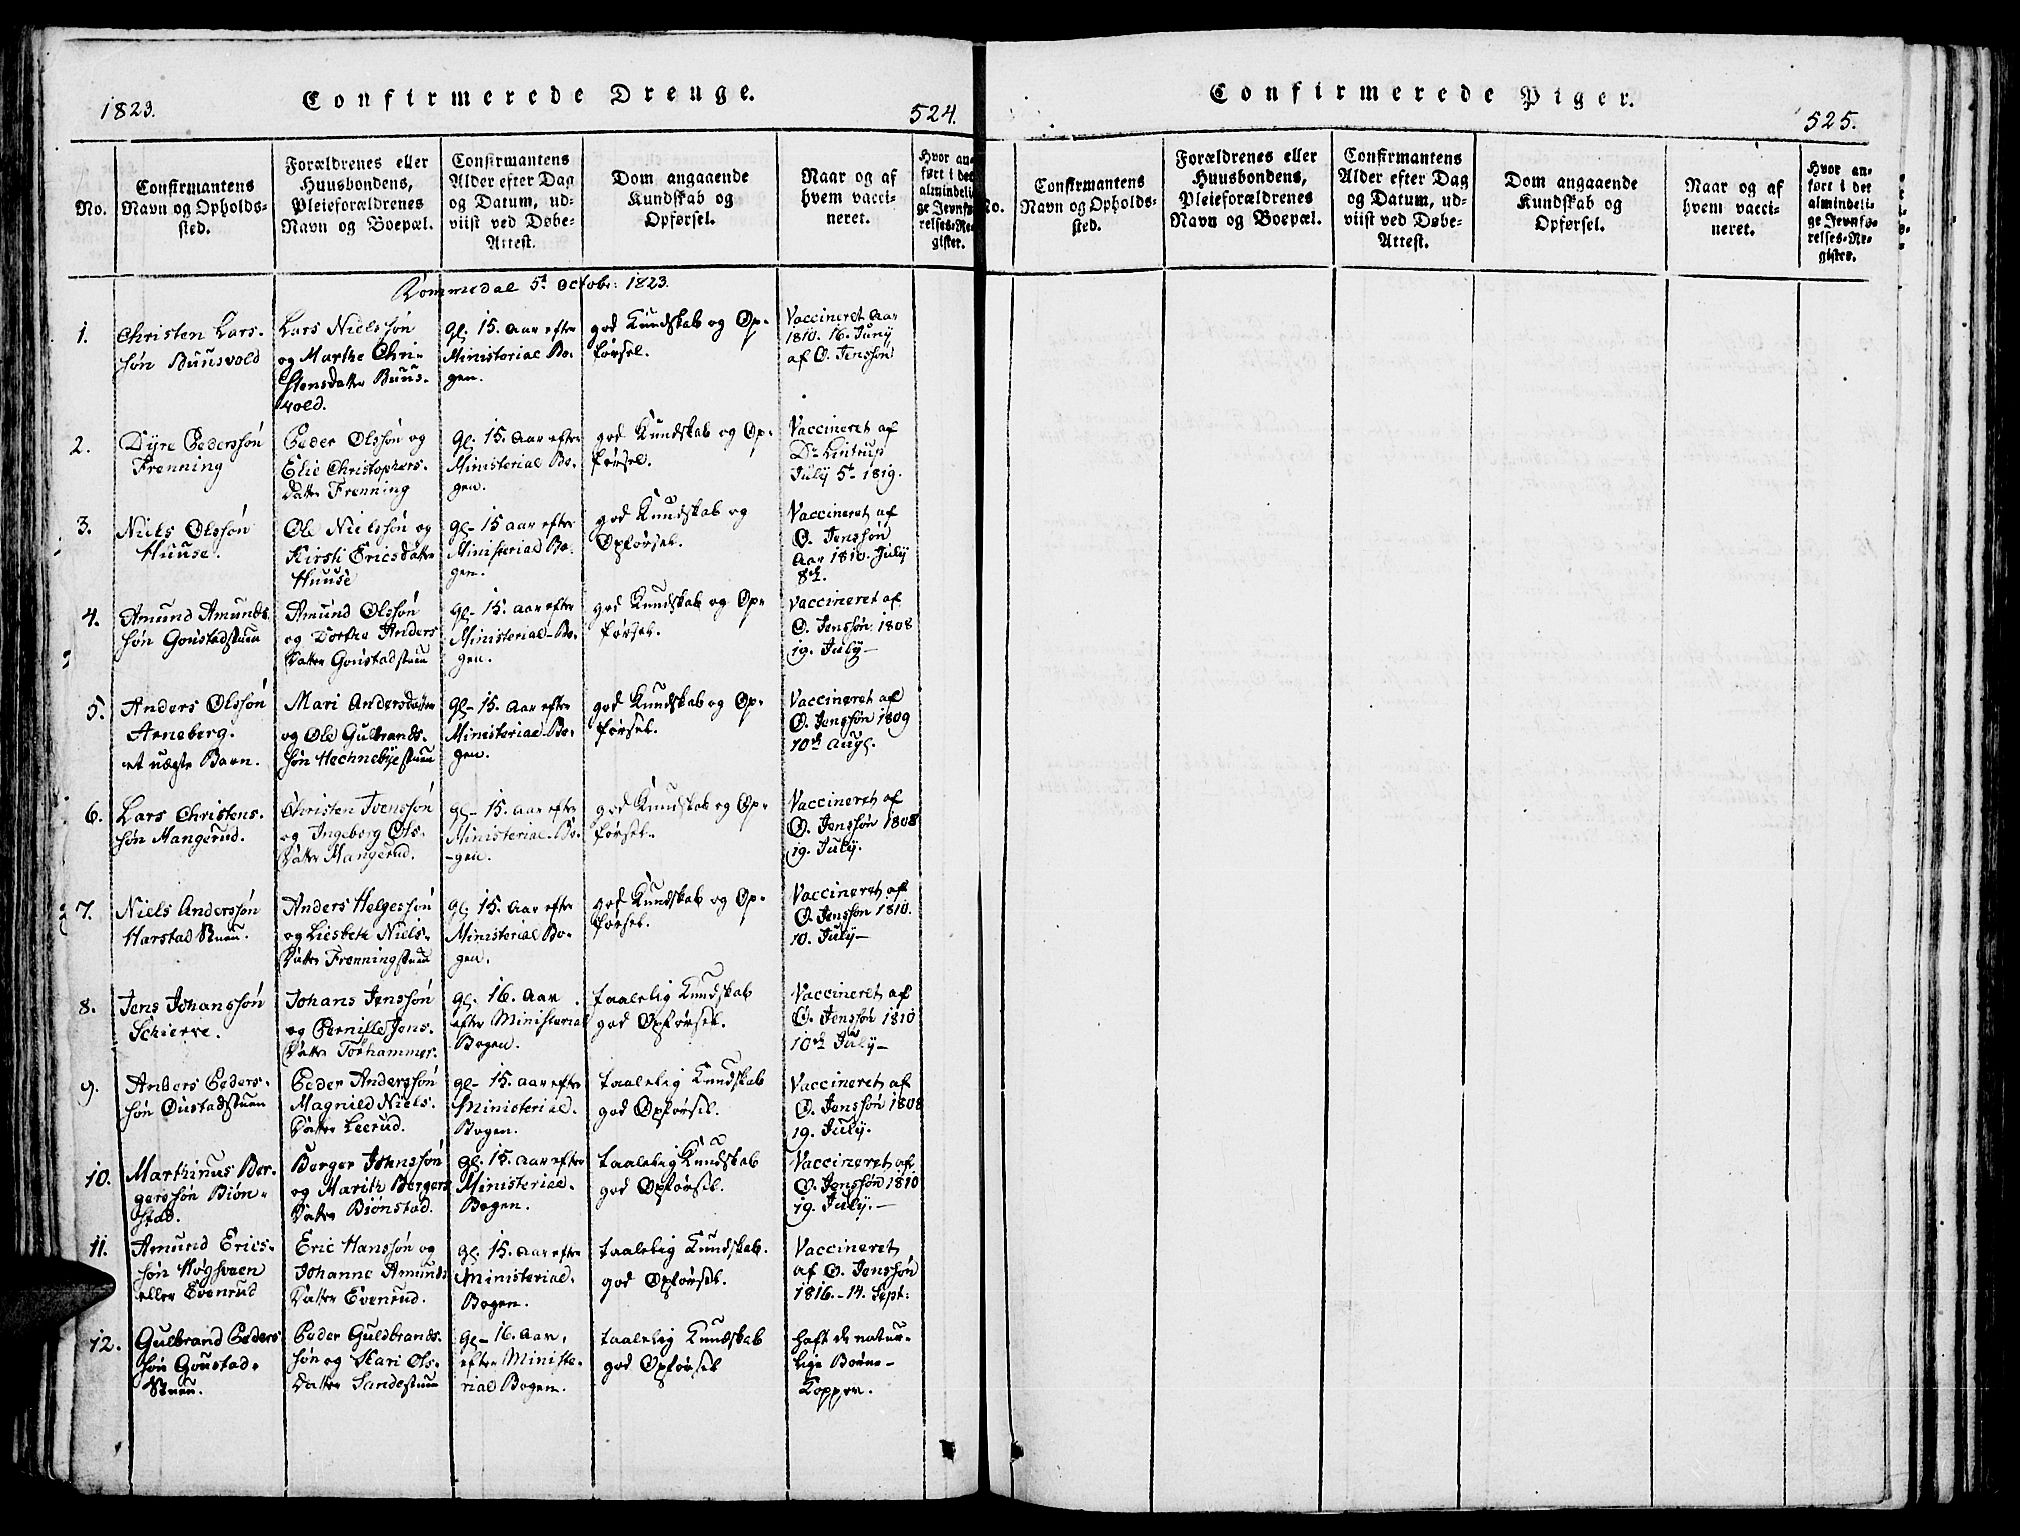 1823.
Confirmerede Drenge.
524.
No.
Confirmantens
Navn og Opholds-
sted.
Forældrenes eller
Huusbondens,
Pleieforældrenes
Navn og Boepæl.
Confirmantens
Alder efter Dag
og Datum, ud-
viist ved Døbe-
Attest.
Dom angaaende
Kundskab og
Opførsel.
Naar og af
hvem vacci-
neret.
Hvor an-
ført i det
almindeli-
ge Jevnfø-
relses-Re-
gister.
Rommedal 5t Octobr: 1823.
1.
Christen Lars-
søn Buusvold
Lars Nielssøn
og Marthe Chri-
stensdatter Buus-
vold.
gl. 15. Aar efter
Ministerial Bo-
gen.
god Kundskab og Op-
førsel.
Vaccineret Aar
1810. 16. Juny
af O. Jenssøn
2.
Dyre Pederssøn
Frenning
Peder Olssøn og
Elie Christophers-
datter Frenning
gl. 15. Aar efter
Ministerial Bo-
gen.
god Kundskab og Op-
førsel.
Vaccineret af
Dr. Lintrup
July 5t 1819.
3.
Niels Olssøn
Huuse.
Ole Nielssøn og
Kirsti Ericsdatter
Huuse
gl- 15 Aar efter
Ministerial Bo-
gen.
god Kundskab og
Opførsel.
Vaccineret af
O. Jenssøn
Aar 1810. July
8de.
4.
Amund Amunds
søn Goustadstuen
Amund Olssøn
og Dorthe Anders
datter Goustadstuen
gl- 15. Aar efter
Ministerial-Bo-
gen.
god Kundskab og Op-
førsel.
Vaccineret af
O. Jenssøn 1808
19. July-
5.
Anders Olssøn
Arneberg.
et uægte Barn.
Mari Andersdatter
og Ole Gulbrands-
søn Hechnebyestuen
gl- 15. Aar efter
Ministerial-Bo-
gen.
god Kundskab og Op-
førsel.
Vaccineret af
O. Jenssøn 1809
10de Aug.
6.
Lars Christens-
søn Mangerud.
Christen Ivenssøn
og Ingeborg Ols-
datter Mangerud.
gl- 15. Aar efter
Ministerial-Bo-
-gen.
god Kundskab og Op-
førsel.
Vaccineret af
O. Jenssøn 1808
19. July.
7.
Niels Anderssøn
Harstad Stuen.
Anders Helgessøn
og Liesbeth Niels-
datter Frenningstuen
gl. 15. Aar efter
Ministerial Bo-
gen.
god Kundskab og Op-
førsel.
Vaccineret af
O. Jenssøn 1810.
10. July-
8.
Jens Johanssøn
Schierre.
Johans Jenssøn
og Pernille Jens-
datter Torhammer.
gl. 16. Aar
efter Ministerial
Bogen.
taalelig Kundskab
god Opførsel.
Vaccineret af
O. Jenssøn 1810
10de July-
9.
Anders Peders-
søn Oustadstuen
Peder Anderssøn
Magnild Niels-
datter Leerud.
gl- 15. Aar efter
Ministerial-
Bogen.
taalelig Kundskab
god Opførsel.
Vaccineret af
O. Jenssøn 1808
19. July.
10.
Marthinus Ber-
gerssøn Biøn-
stad.
Berger Johnssøn
og Marith Bergers
datter Biønstad.
gl. 15. Aar efter
Ministerial-
Bogen.
taalelig Kundskab
god Opførsel.
Vaccineret af
O. Jenssøn 1810
19. July.-
11.
Amund Erics-
søn Høgsveen
eller Evenrud
Eric Hanssøn og
Johanne Amunds
datter Evenrud.
gl. 15. Aar efter
Ministerial-
Bogen.
taalelig Kundskab.
god Opførsel.
Vaccineret
af O. Jenssøn
1816.-14. Sept:
12.
Gulbrand Peders
søn Goustad-
Stuen.
Peder Guldbrands-
søn og Kari Ols-
datter Sandestuen
gl- 16. Aar,
efter Ministe-
rial Bogen.
taalelig Kundskab
god Opførsel
haft de natur-
lige Børne-
Kopper.
Confirmerede Piger.
525.
No.
Confirmantens
Navn og Opholds-
sted.
Forældrenes eller
Huusbondens,
Pleieforældrenes
Navn og Boepæl.
Confirmantens
Alder efter Dag
og Datum, ud-
viist ved Døbe-
Attest.
Dom angaaende
Kundskab og
Opførsel.
Naar og af
hvem vacci-
neret.
Hvor an-
ført i det
almindeli-
ge Jevnfø-
relses-Re-
gister.